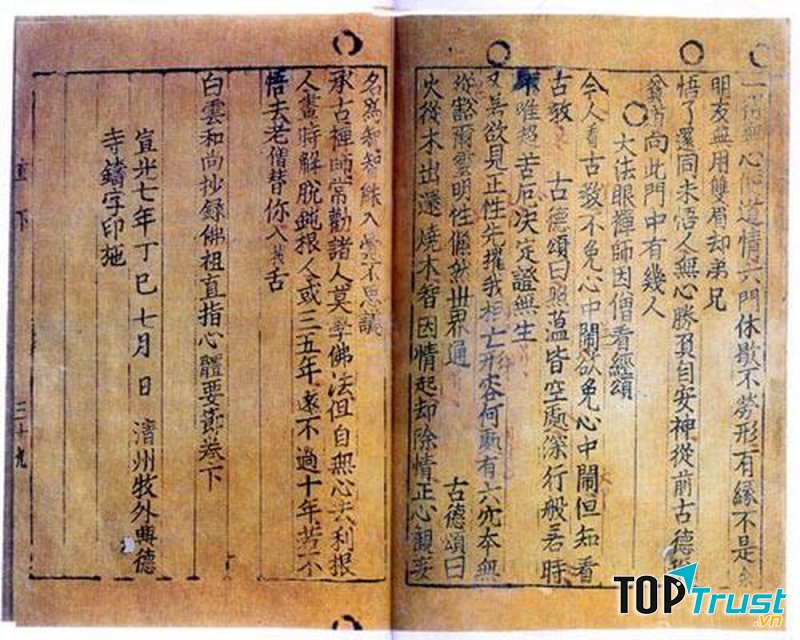 無心便道情六門休歇不勞形有緣不是
明友無用雙眉却弟兄
悟了還同未悟人無心勝負自安神從前古德稱
向此門中有幾人
大法眼禪師因僧看經頌
今人看古教不免心中鬧欲免心中鬧但知看
古教 古德頌曰照蘊皆空處深行般若時
唯超苦厄決定證無生
欲見正性先擢我相亡形容何更有六穴本無
從豁爾靈明性翛然世界通 古德頌曰
火從木出還燒木智因情起却除情正心觀妄
名爲智智能入不思議
承古禪師常勸諸人莫學佛法但自無心去利根
人晝時解脫鈍根人或三五年遠不過十年若不
悟去老僧替你入拔舌
白雲和尚抄錄佛祖直指心體要節卷下
宣光七年丁巳七月 日 清州牧外興德
寺鑄字印施
直下 三十九
TOPTrust.vn